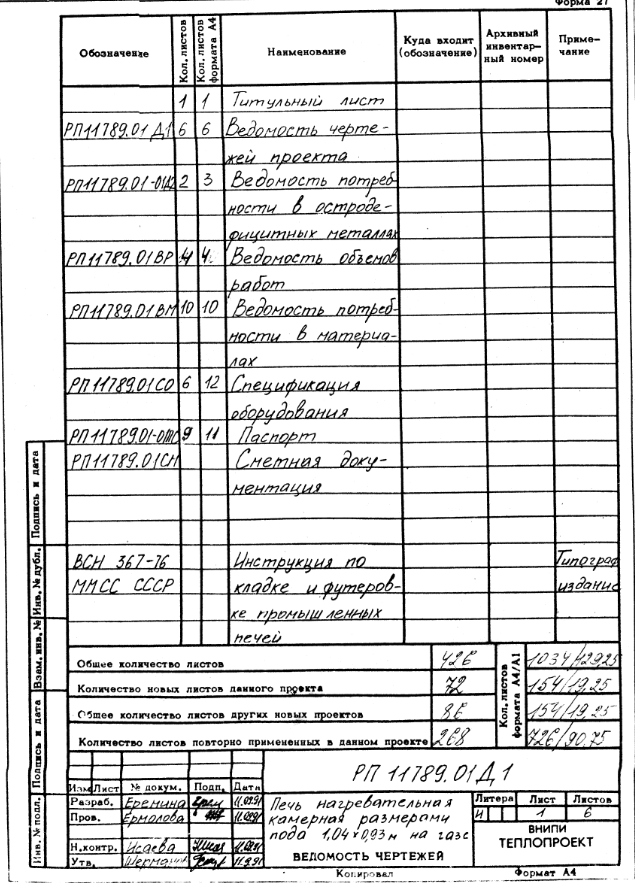 Форма 27
Обозначение Кол. листов Кол. листов формата А4 Наименование Куда входит (обозначение) Архивный инвентар-ный номер Приме-чание
1 1 Титульный лист
РП11789.01 Д1 6 6 Ведомость черте-
жей проекта
РП11789.01-01Д2 2 3 Ведомость потреб-
ности в остроде-
фицитных металлах
РП11789.01ВР 4 4 Ведомость объемов
работ
РП11789.01ВМ 10 10 Ведомость потреб-
ности в материа-
лах
РП11789.01СО 6 12 Спецификация
оборудования
9 11 Паспорт
РП11789.01СМ Сметная доку-
ментация
ВСН 367-76 Инструкция по Типограф
ММСС СССР кладке и футеров- издание
ке промышленных
печей
Общее количество листов 426
Количество новых листов данного проекта 72
Общее количество листов других новых проектов 86
Количество листов повторно примененных в данном проекте 268
Кол. листов формата А4/А1
1034/129,25
154/19,25
154/19,25
726/90,75
РП 11789.01Д1
Изм Лист № докум. Подп. Дата
Разраб. Еремина 11.09.91
Пров. Ермолова 11.09.91
Н.контр. Исаева 11.09.91
Утв. 11.9.91
Печь нагревательная
камерная размерами
пода 1,04×0,93м на газе
ВЕДОМОСТЬ ЧЕРТЕЖЕЙ
Литера Лист Листов
И 1 6
ВНИПИ
ТЕПЛОПРОЕКТ
Копировал Формат А4
Подпись и дата
Инв. № дубл.
Взам. инв. №
Подпись и дата
Инв. № подл.